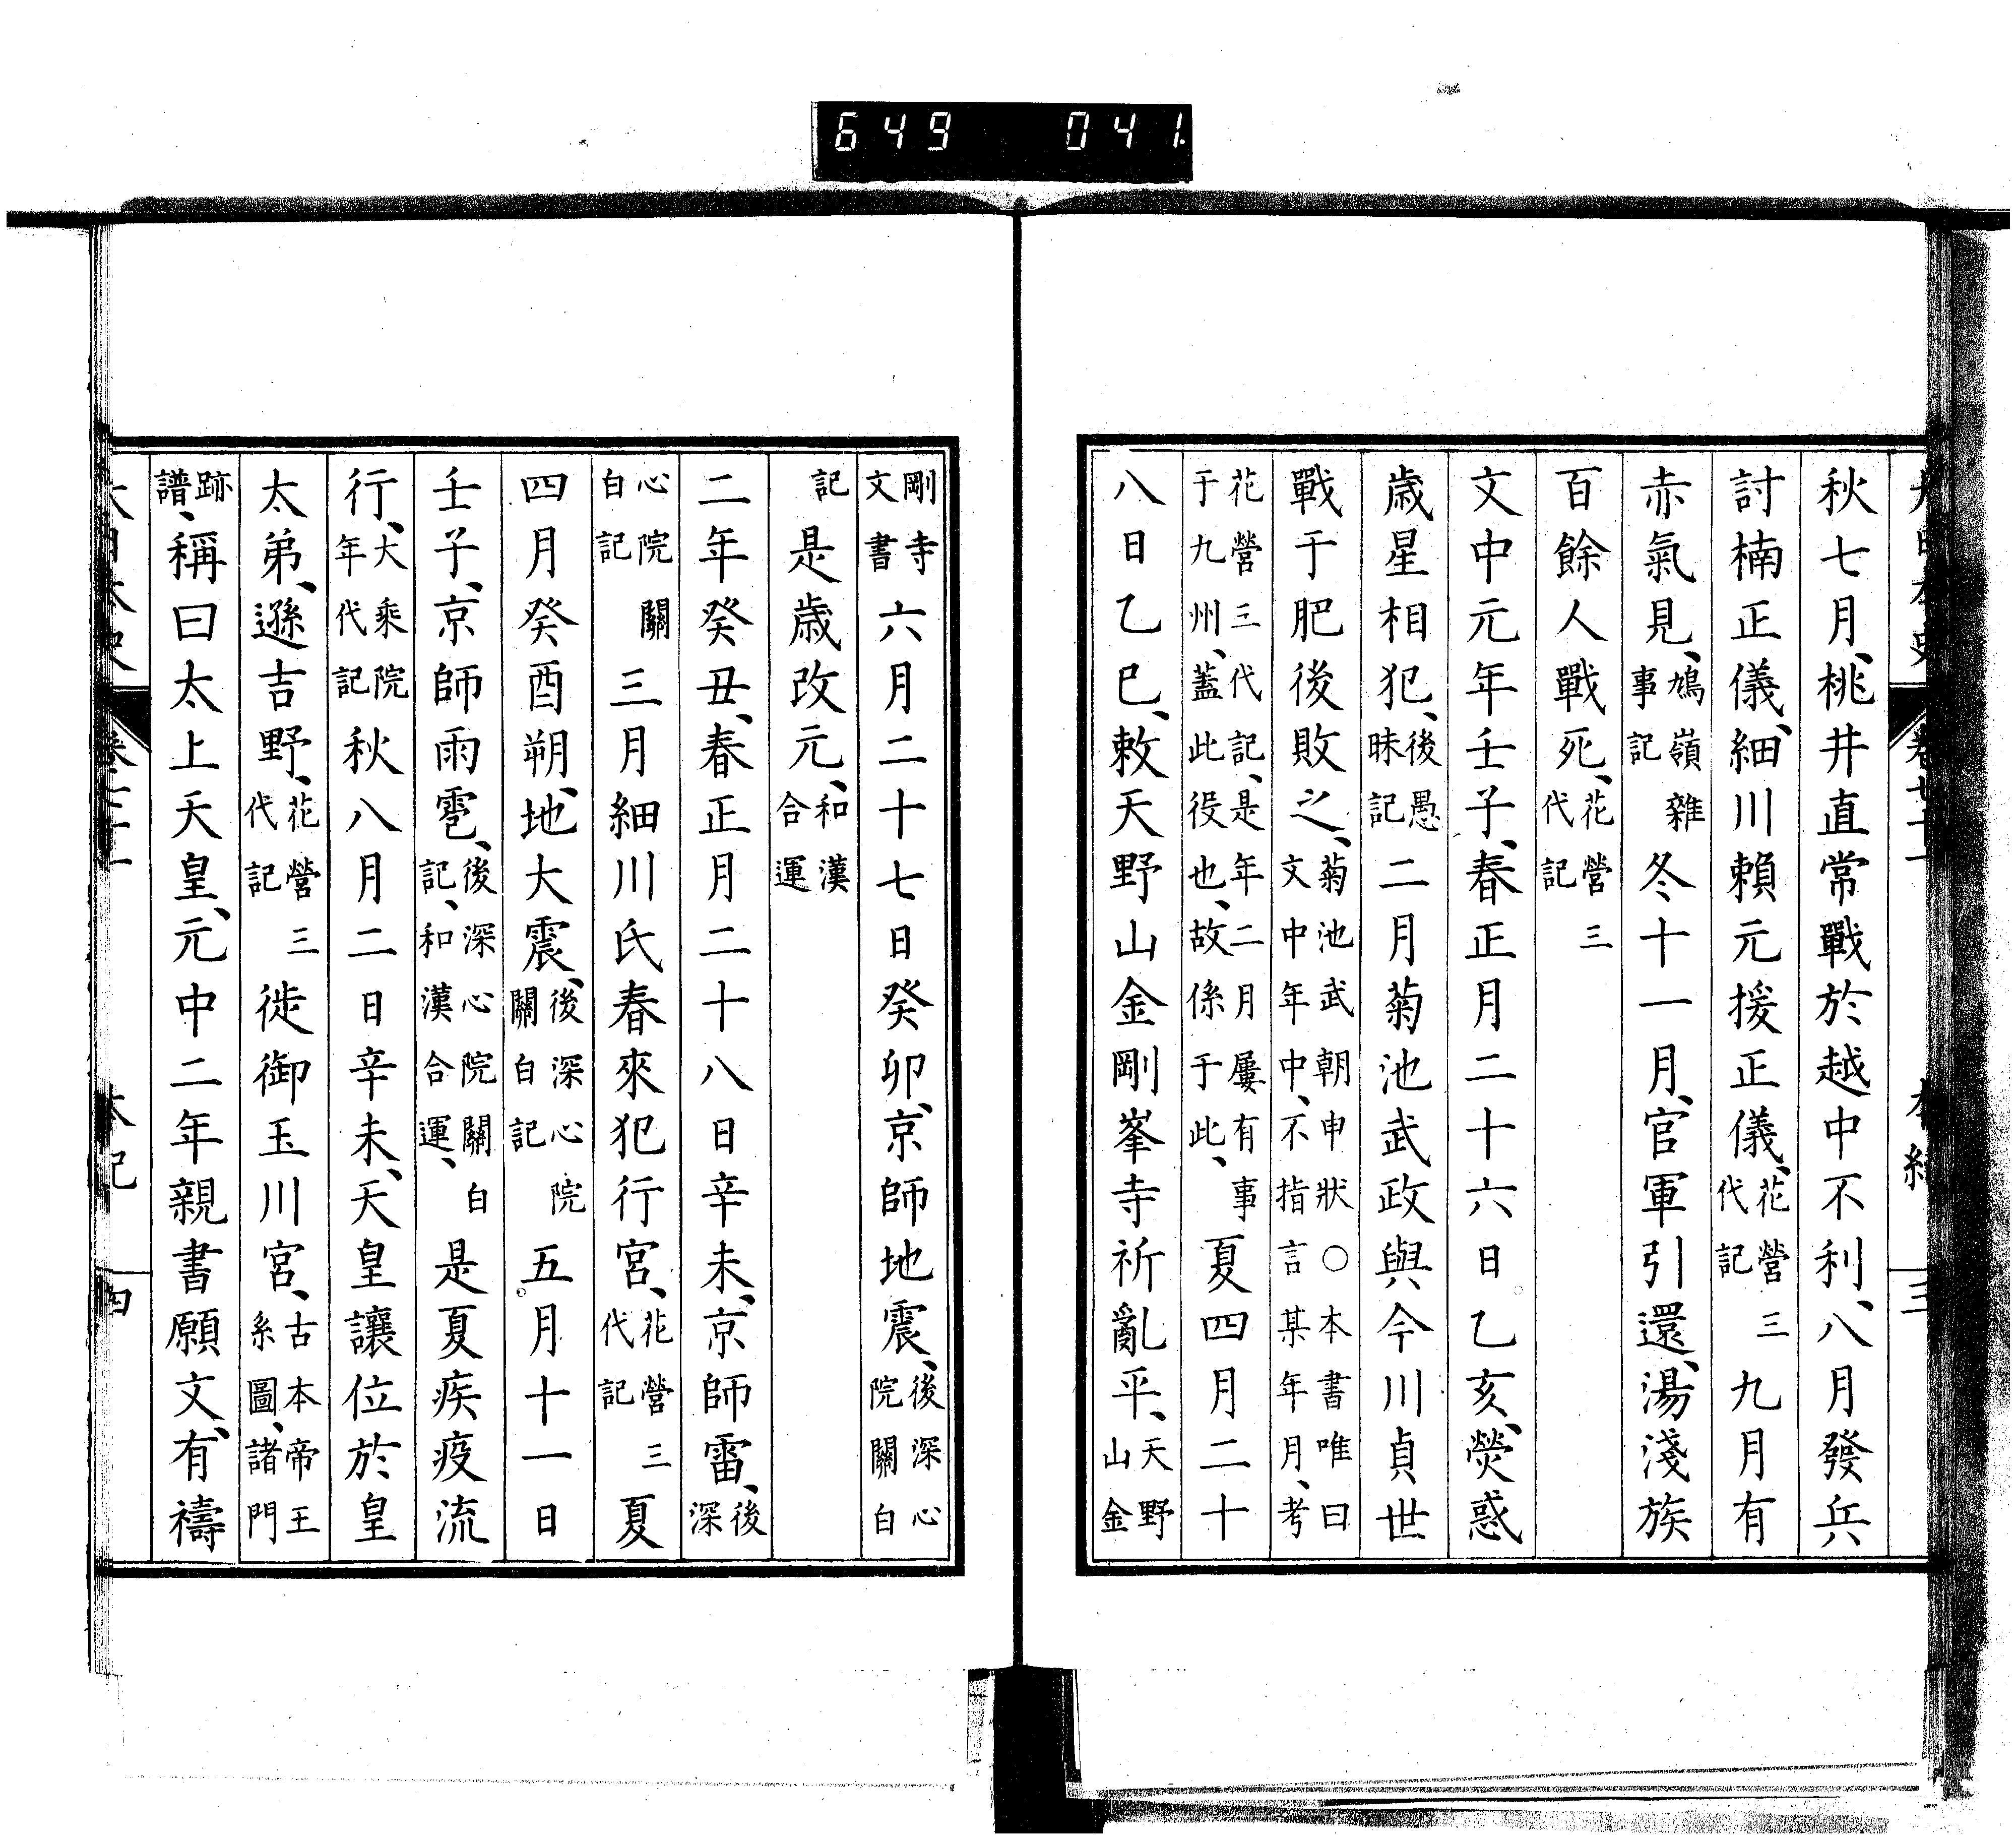 649 041
秋七月、桃井直常戰於越中不利、八月發兵
討楠正儀、細川賴元援正儀、花營三代記九月有
赤氣見、鳩嶺雜事記冬十一月、官軍引還、湯淺族
百餘人戰死、花營三代記
文中元年壬子、春正月二十六日乙亥、熒惑
歲星相犯、後愚昧記二月菊池武政與今川貞世
戰于肥後敗之、菊池武朝申狀〇本書唯曰文中年中、不指言某年月、考
花營三代記、是年二月屢有事于九州、蓋此役也、故係于此、夏四月二十
八日乙巳、敕天野山金剛峯寺祈亂平、天野山金
剛寺文書六月二十七日癸卯、京師地震、後深心院關白
記是歲改元、和漢合運
二年癸丑、春正月二十八日辛未、京師雷、後深
心院關白記三月細川氏春來犯行宮、花營三代記夏
四月癸酉朔、地大震、後深心院關白記五月十一日
壬子、京師雨雹、後深心院關白記、和漢合運、是夏疾疫流
行、大乘院年代記秋八月二日辛未、天皇讓位於皇
太弟、遜吉野、花營三代記徙御玉川宮、古本帝王系圖、諸門
跡譜、稱曰太上天皇、元中二年親書願文、有禱